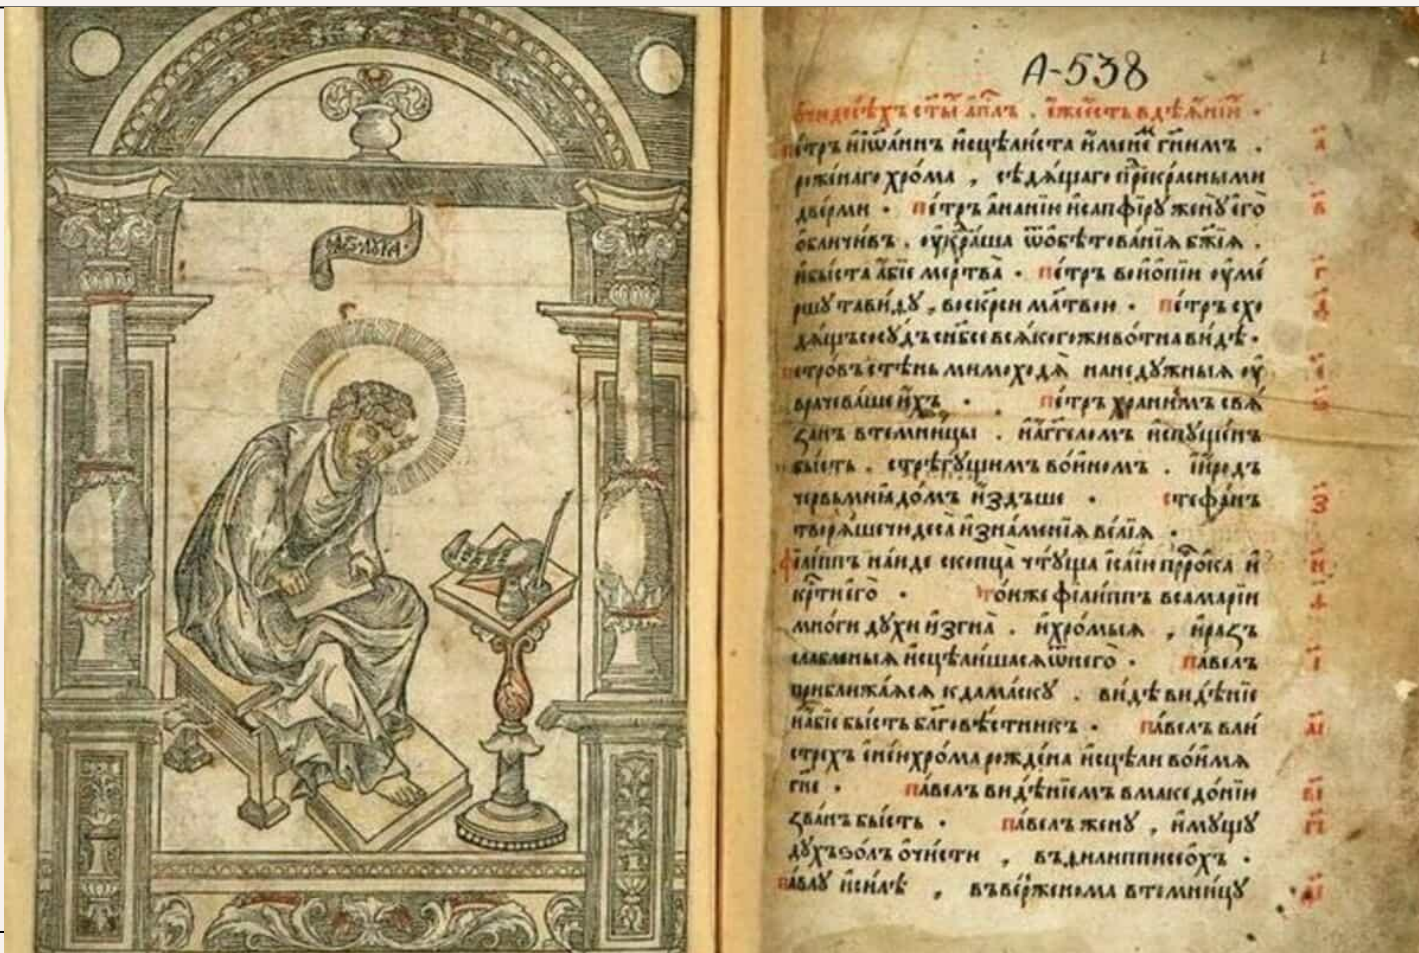 А-538
ѻчюдесѣхъ ст҃ы̑ апⷭ҇лъ . є҆́жеесть вдѣѧ̑нїи .
пе́тръ иїѡа́ннъ и҆сцѣлиста и҆́менеⷨ гн҃имъ . а҃
роже́наго хро́ма , сѣдѧ́щаго прⷣекра́сными
две́рми . пе́тръ а҆на́нїю и҆сапфі́ру женꙋ є҆го̀ в҃
ѻ҆бличи́въ .
и҆бы́ста а҆́бїе ме́ртва . пе́тръ воиѻ҆пїи ᲂу҆ме́ г҃
ршꙋ тави́дꙋ , воскреси мл҃твою . пе́тръ схо д҃
дѧ́щъ сосꙋ́дъ с нб҃се всѧ́кого живо́тна ви́дѣ .
пе́тровъ стѣ́нь мимоходѧ̀ на недꙋ́жныѧ ᲂу҆ є҃
врачева́ше и҆́хъ . пе́тръ храни́мъ свѧ́ ѕ҃
занъ в темни́цы . и҆а҆́гг҃еломъ и҆спꙋще́нъ
бы́сть . стрегꙋ́щимъ во́иномъ . и҆и҆́родъ
че́рвьми ꙗ҆до́мъ и҆́здъше . стефа́нъ з҃
творѧ́ше чюдеса̀ и҆зна́менїѧ ве́лїѧ .
фили́ппъ на́иде скопца̀ чтꙋ́ща і҆са́їю прⷪ҇ро́ка и҆ и҃
крⷭ҇ти є҆го̀ . то́йже фили́ппъ в самарі́и ѳ҃
мно́ги дꙋ́хи и҆згна̀ . и҆хро́мыѧ , и҆ра́зъ
сла́бленыѧ и҆сцѣли́шасѧ ѿ него̀ . па́велъ і҃
приближа́ѧсѧ к дама́скꙋ . ви́дѣ видѣ́нїе
и҆а҆́бїе бы́сть бл҃говѣ́стникъ . па́велъ в ли́ а҃і
стрехъ хро́ма рожде́на и҆сцѣли во и҆́мѧ
гн҃е . па́велъ видѣ́нїемъ в македо́нїю в҃і
зва́нъ бы́сть . па́велъ женꙋ̀ , и҆мꙋ́щꙋ г҃і
дꙋ́хъ ѕо́лъ ѻ҆чи́сти , въ филипписеѻхъ .
па́влꙋ и҆си́лѣ , въве́рженома в темни́цꙋ д҃і